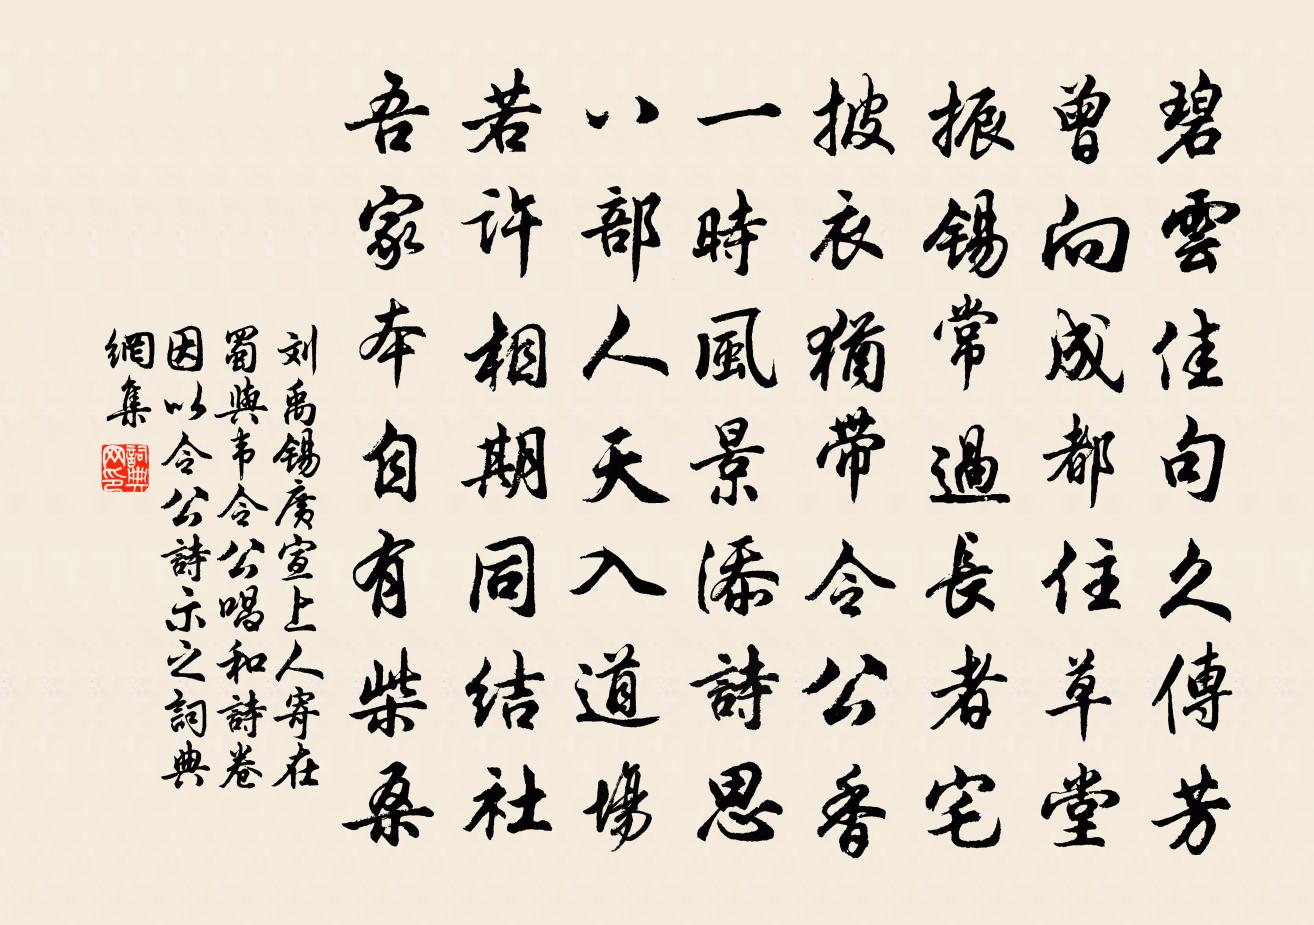 碧雲佳句久傳芳
曾向成都住草堂
振錫常過長者宅
披衣猶帶令公香
一時風景添詩思
八部人天入道場
若許相期同結社
吾家本自有柴桑
刘禹锡廣宣上人寄在
蜀與韦令公唱和詩卷
因以令公詩示之詞典
網集
詞典網印